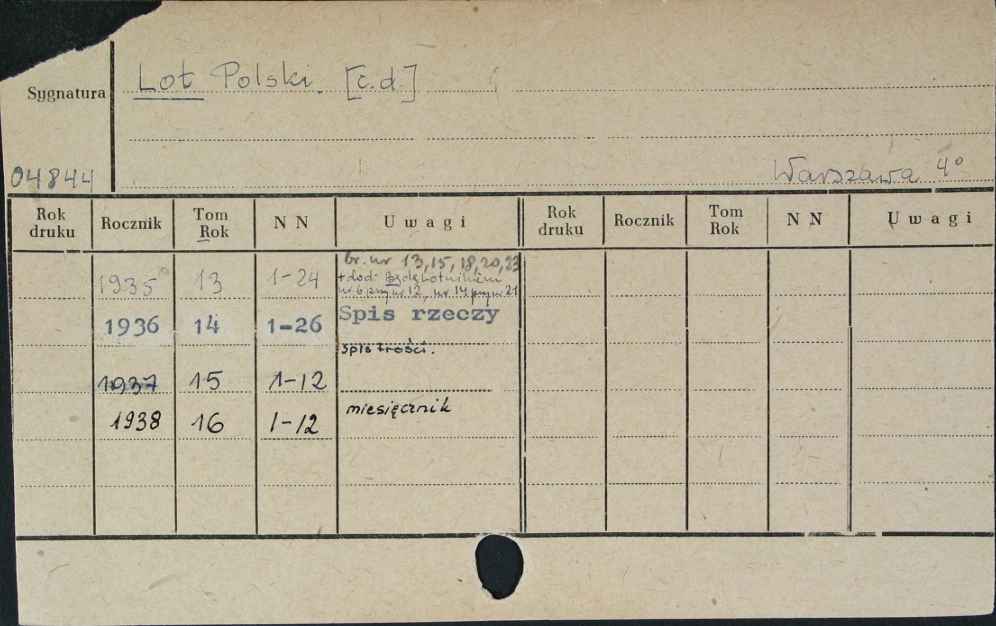 Lot Polski. [c.d.]
Sygnatura
04844
Warszawa 4°
Rok druku Rocznik Tom Rok NN Uwagi Rok druku Rocznik Tom Rok NN Uwagi
br. nr 13, 15, 18, 20, 23
1935 13 1-24 + dod: Lotnikiem
nr 6 przy nr 12, nr 14 przy nr 21
1936 14 1-26 Spis rzeczy
spis treści.
1937 15 1-12
1938 16 1-12 miesięcznik